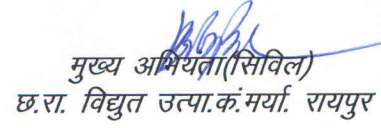 मुख्य अभियंता(सिविल)
छ.रा. विद्युत उत्पा.कं.मर्या. रायपुर